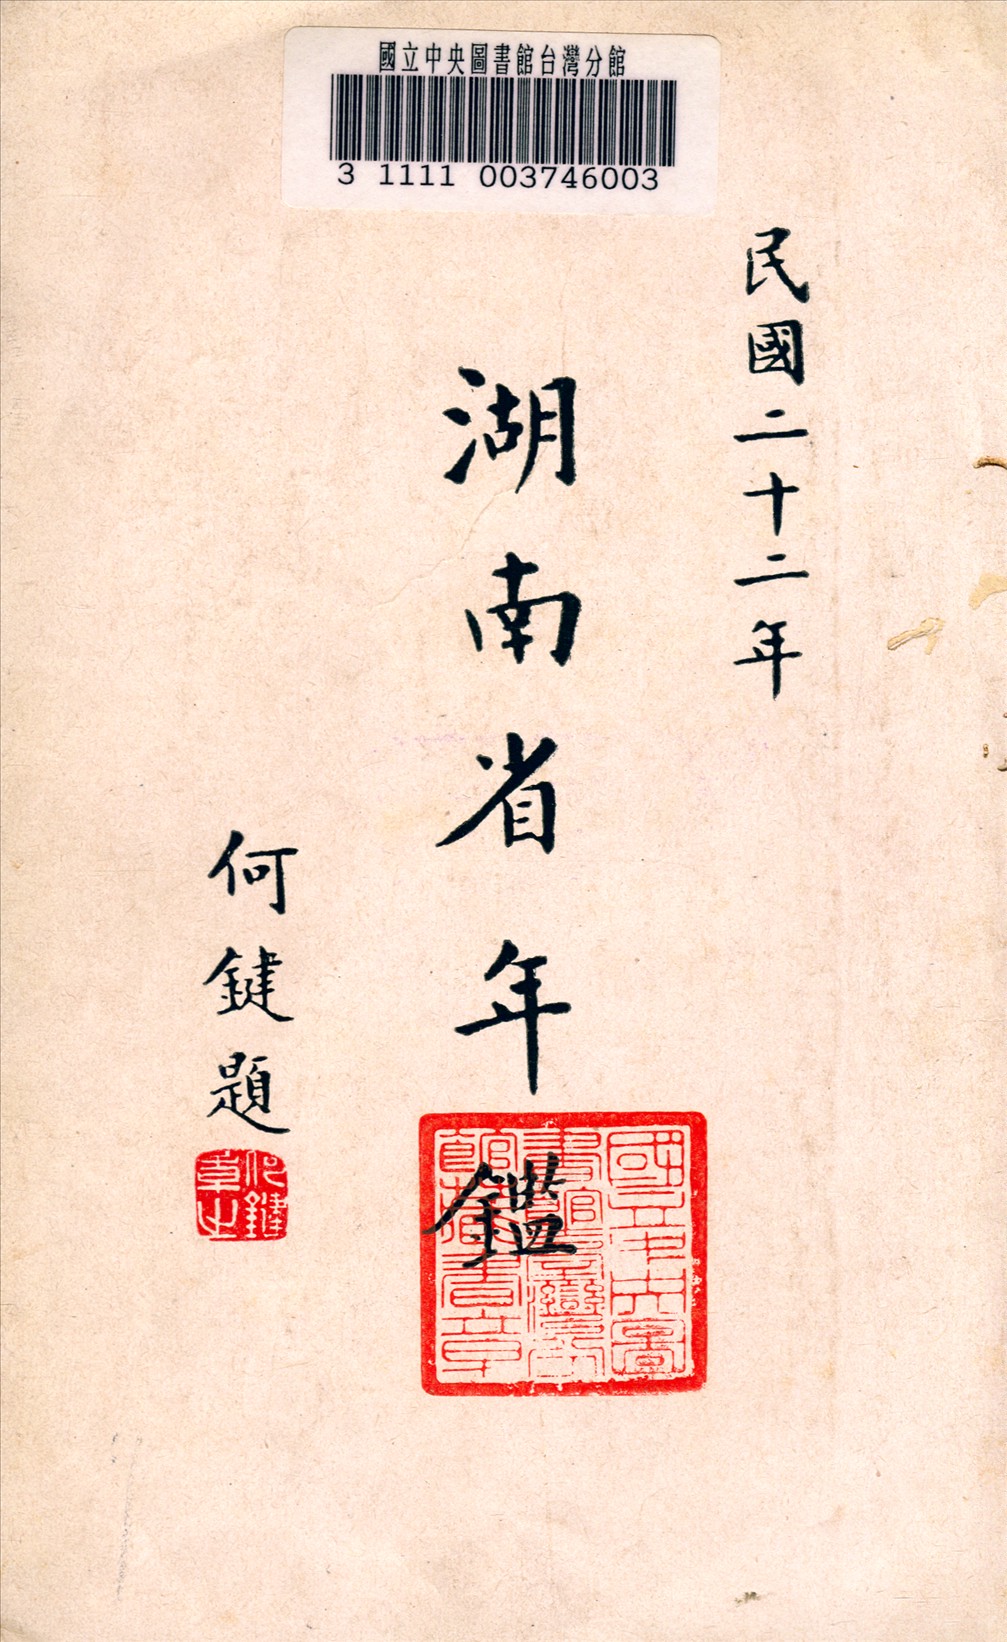 國立中央圖書館台灣分館
3 1111 003746003
民國二十二年
湖南省年鑑
何鍵題
何鍵之章
國立中央圖書館臺灣分館藏書章